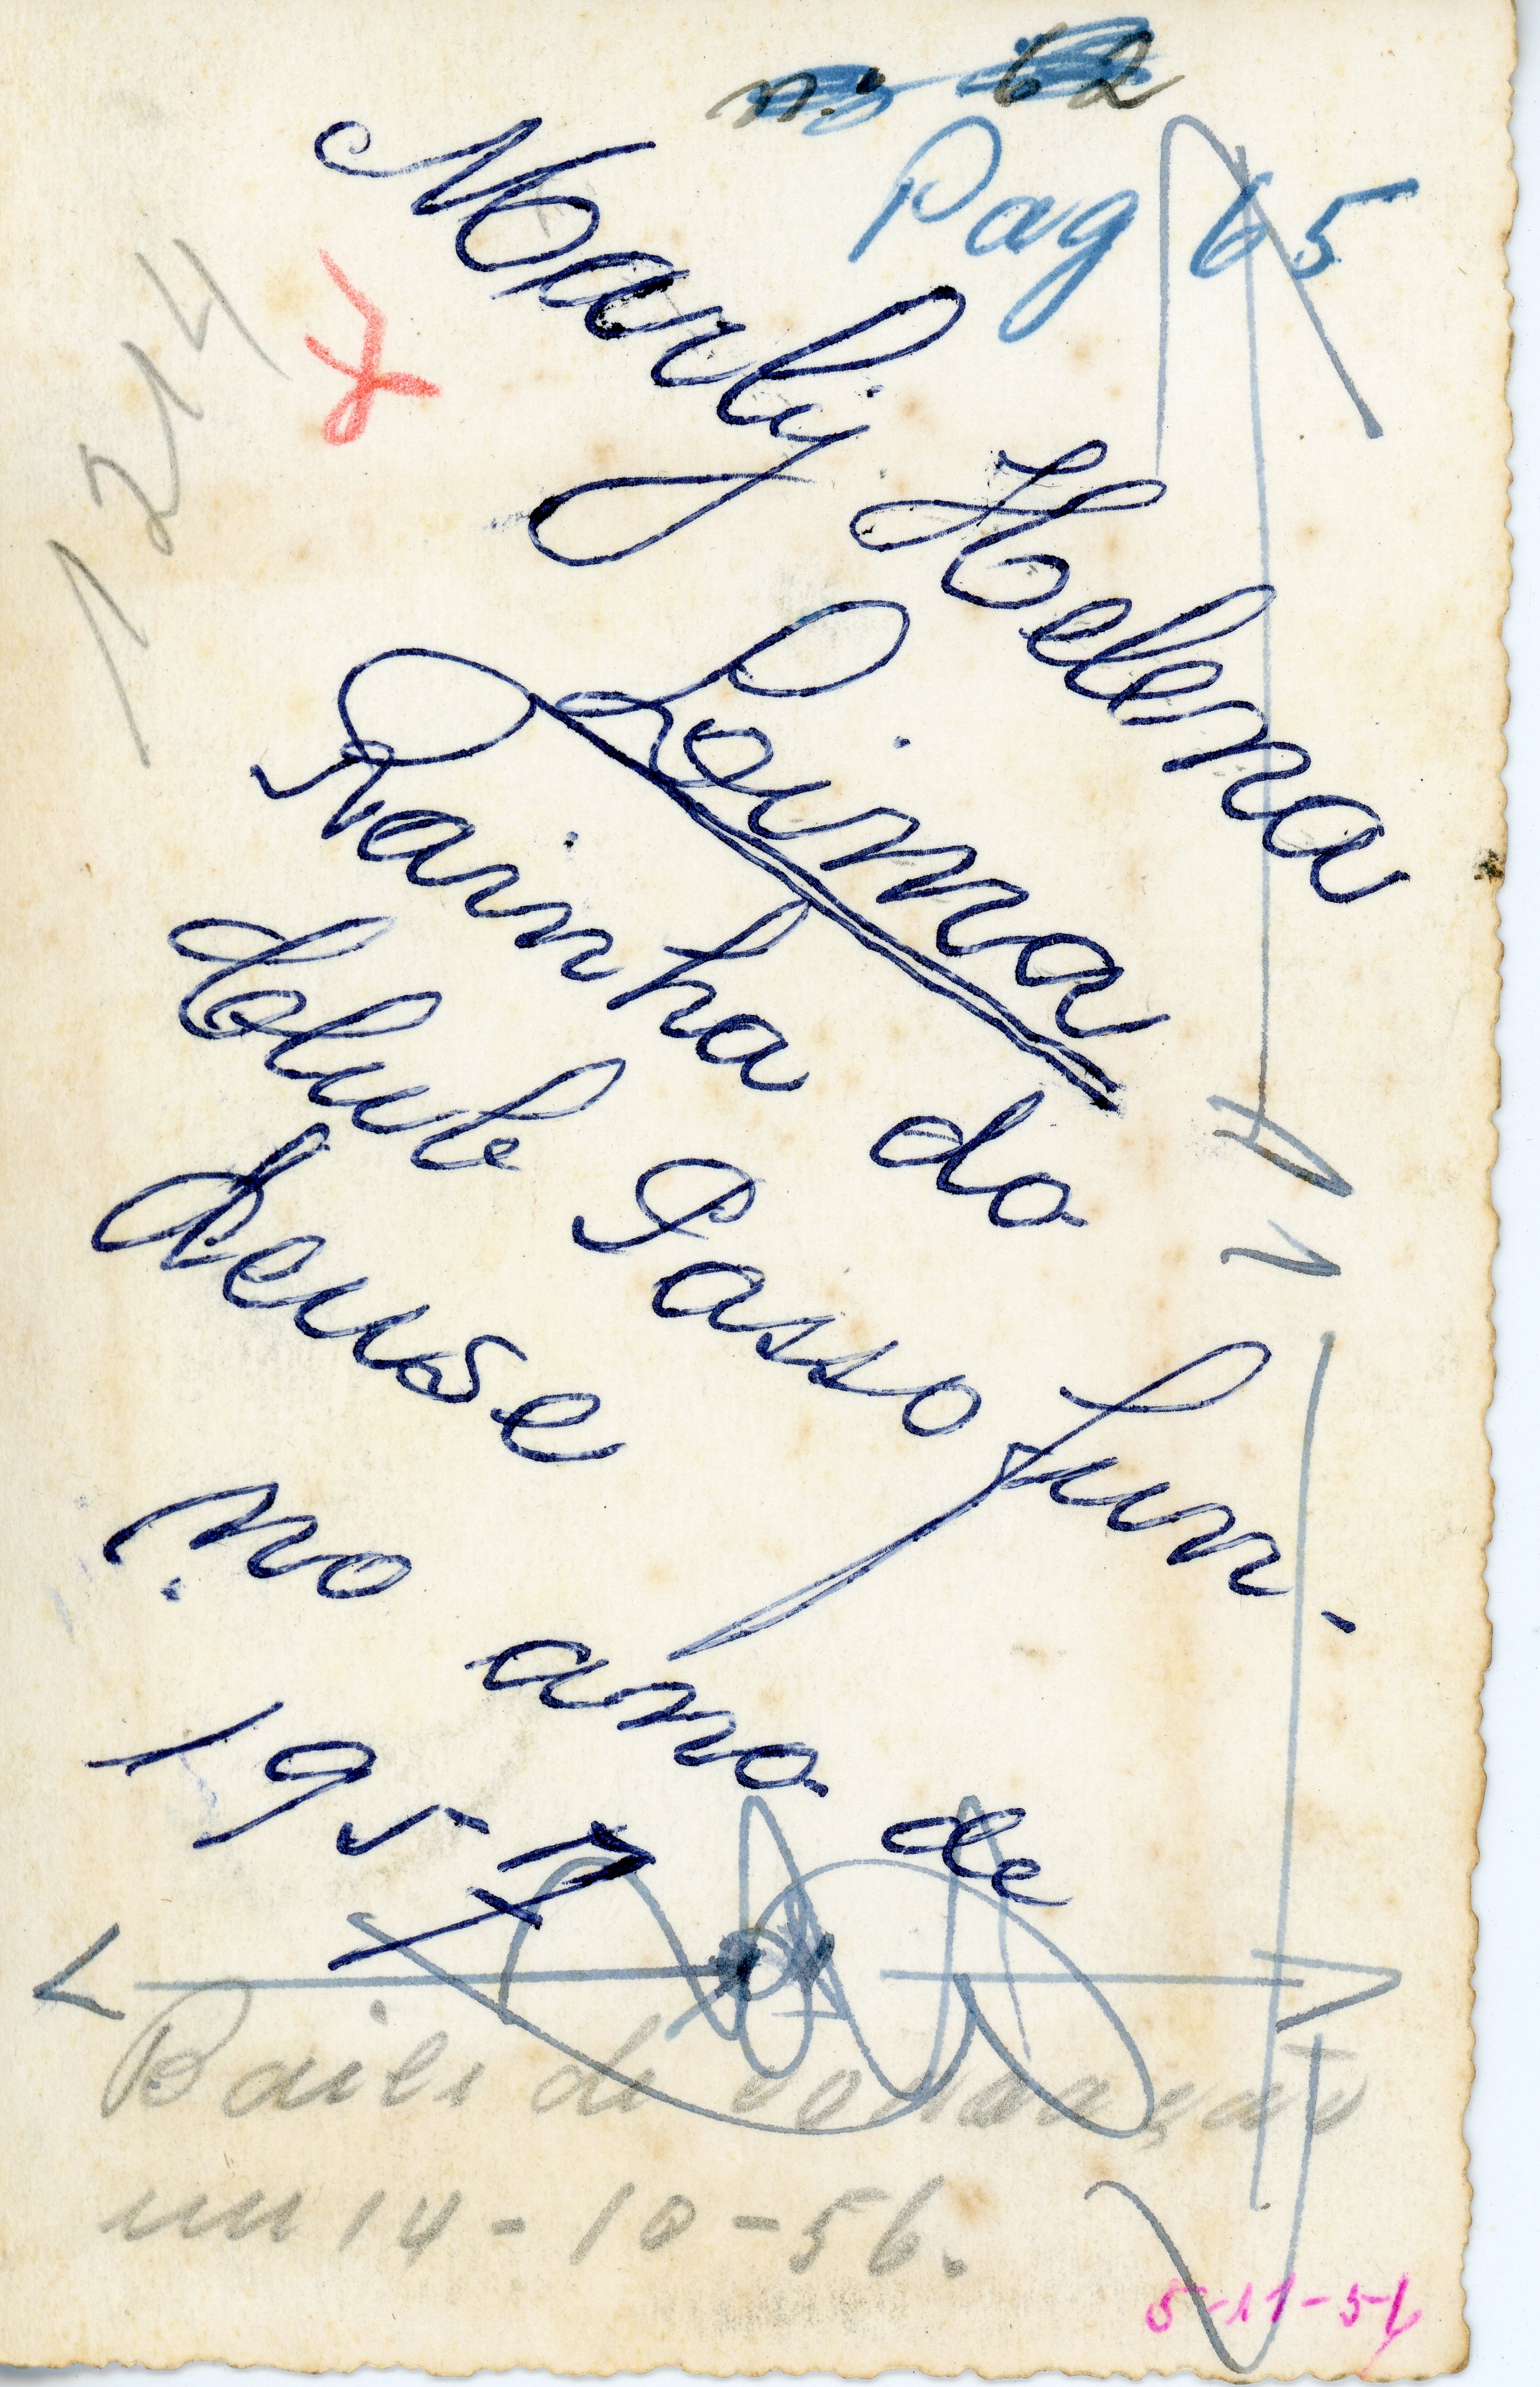 n.: 62
Pag 65
1214
Marly Helena
Loima
Rainha do
Clube Passo fun-
dense
no ano de
1957
Baile de coroação
em 14-10-56.
5-11-56